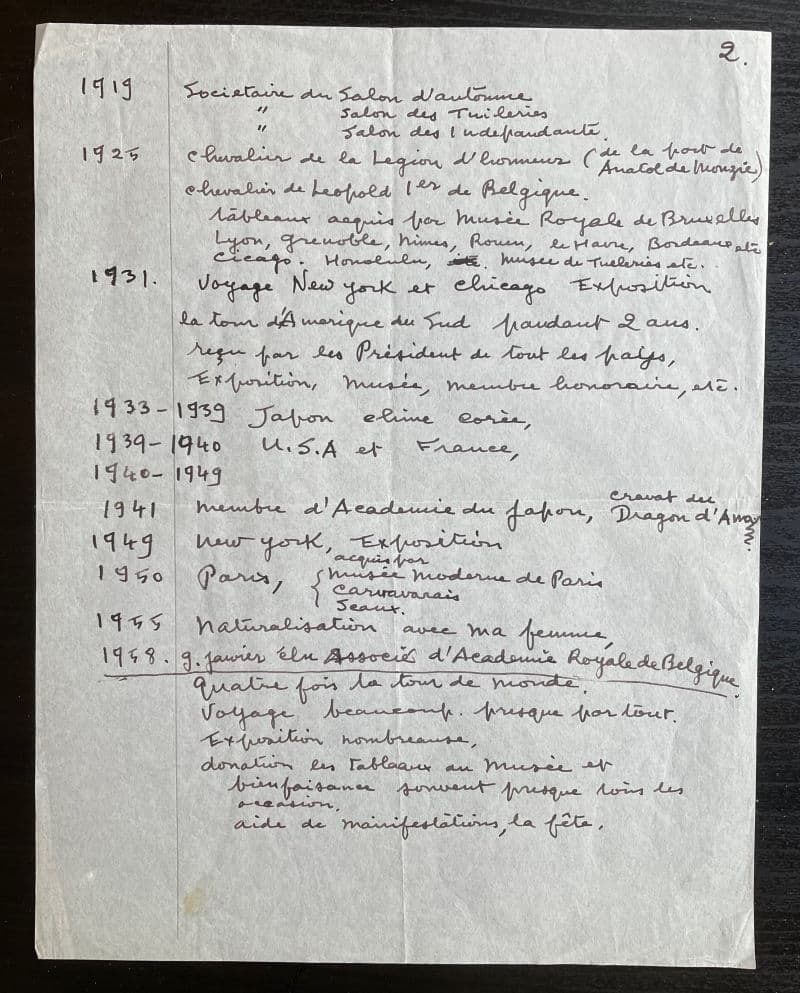 2.
1919 Societaire du Salon d'automne
" Salon des Tuileries
" Salon des Indepandante.
1925 chevalier de la Legion d'honneur (de la part de Anatol de Monzie)
chevalier de Leopold 1er de Belgique.
tableaux acquis par Musée Royale de Bruxelles
Lyon, Grenoble, Nimes, Rouen, le Havre, Bordeaux etc
Cicago. Honolulu, Musée de Tueleries etc.
1931. Voyage New York et Chicago Exposition
la tour d'Amerique du Sud pandant 2 ans.
reçu par les Président de tout les païys,
Exposition, Musée, membre honoraire, etc.
1933-1939 Japon chine corèe,
1939-1940 U.S.A et France,
1940-1949
1941 membre d'Academie du Japon, cravat du Dragon d'Annam
1949 New York, Exposition
1950 Paris, { acquis par
Musée Moderne de Paris
Carnavarais
Seaux.
1955 Naturalisation avec ma femme,
1958. 9. janvier élu Associé d'Academie Royale de Belgique.
quatre fois la tour de monde.
Voyage beaucoup. presque partout.
Exposition nombreause,
donation les tableaux au Musée et
bienfaisance souvent presque tous les
occasion.
aide de manifestations, la fête.